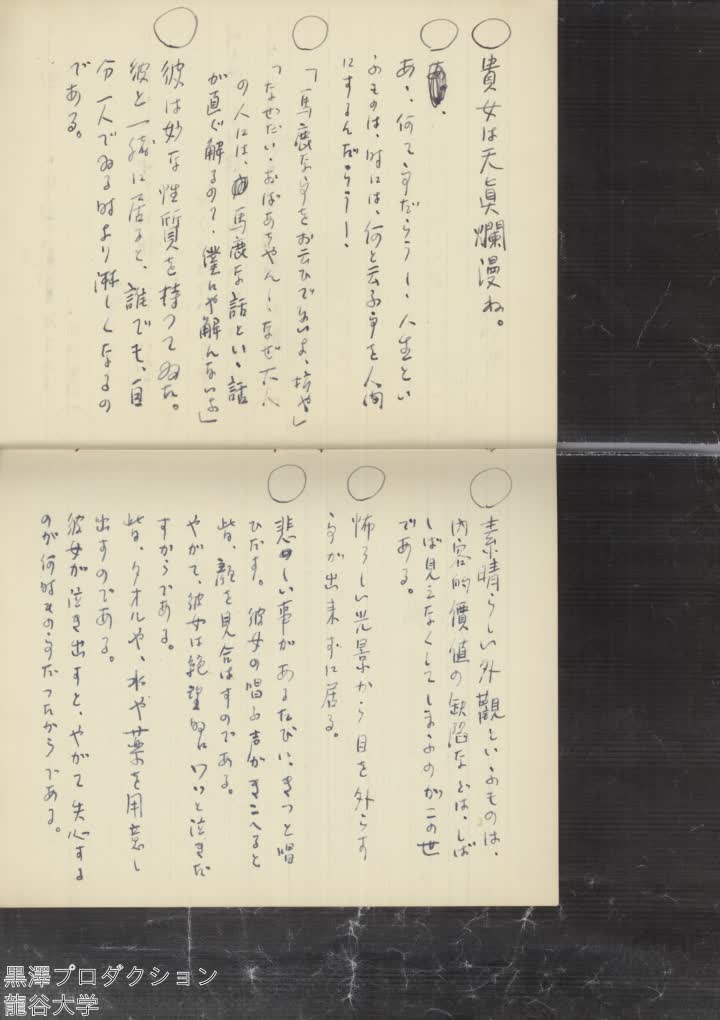 ○
貴女は天眞爛漫ね。
○
あゝ、何て事だらう！、人生とい
ふものは、時には、何と云ふ事を人間
にするんだらう！、
○
「馬鹿な事をお云ひでないよ、坊や」
「なぜだい・おばあちやん！、なぜ大人
の人には、馬鹿な話といゝ話
が直ぐ解るの？、僕にや解んないよ」
○
彼は妙な性質を持つてゐた。
彼と一緒に居ると、誰でも、自
分一人でゐる時より淋しくなるの
である。
○
素晴らしい外觀といふものは、
内容的價値の缺陥などは、しば
しば見えなくしてしまふのがこの世
である。
○
怖ろしい光景から目を外らす
事が出来ずに居る。
○
悲しい事があるたびに、きつと唱
ひだす。彼女の唱ふ声がきこへると
皆、顔を見合はすのである。
やがて、彼女は絶望的にワッと泣きだ
すからである。
皆、タオルや、水や薬を用意し
出すのである。
彼女が泣き出すと、やがて失心する
のが何時もの事だつたからである。
黒澤プロダクション
龍谷大学